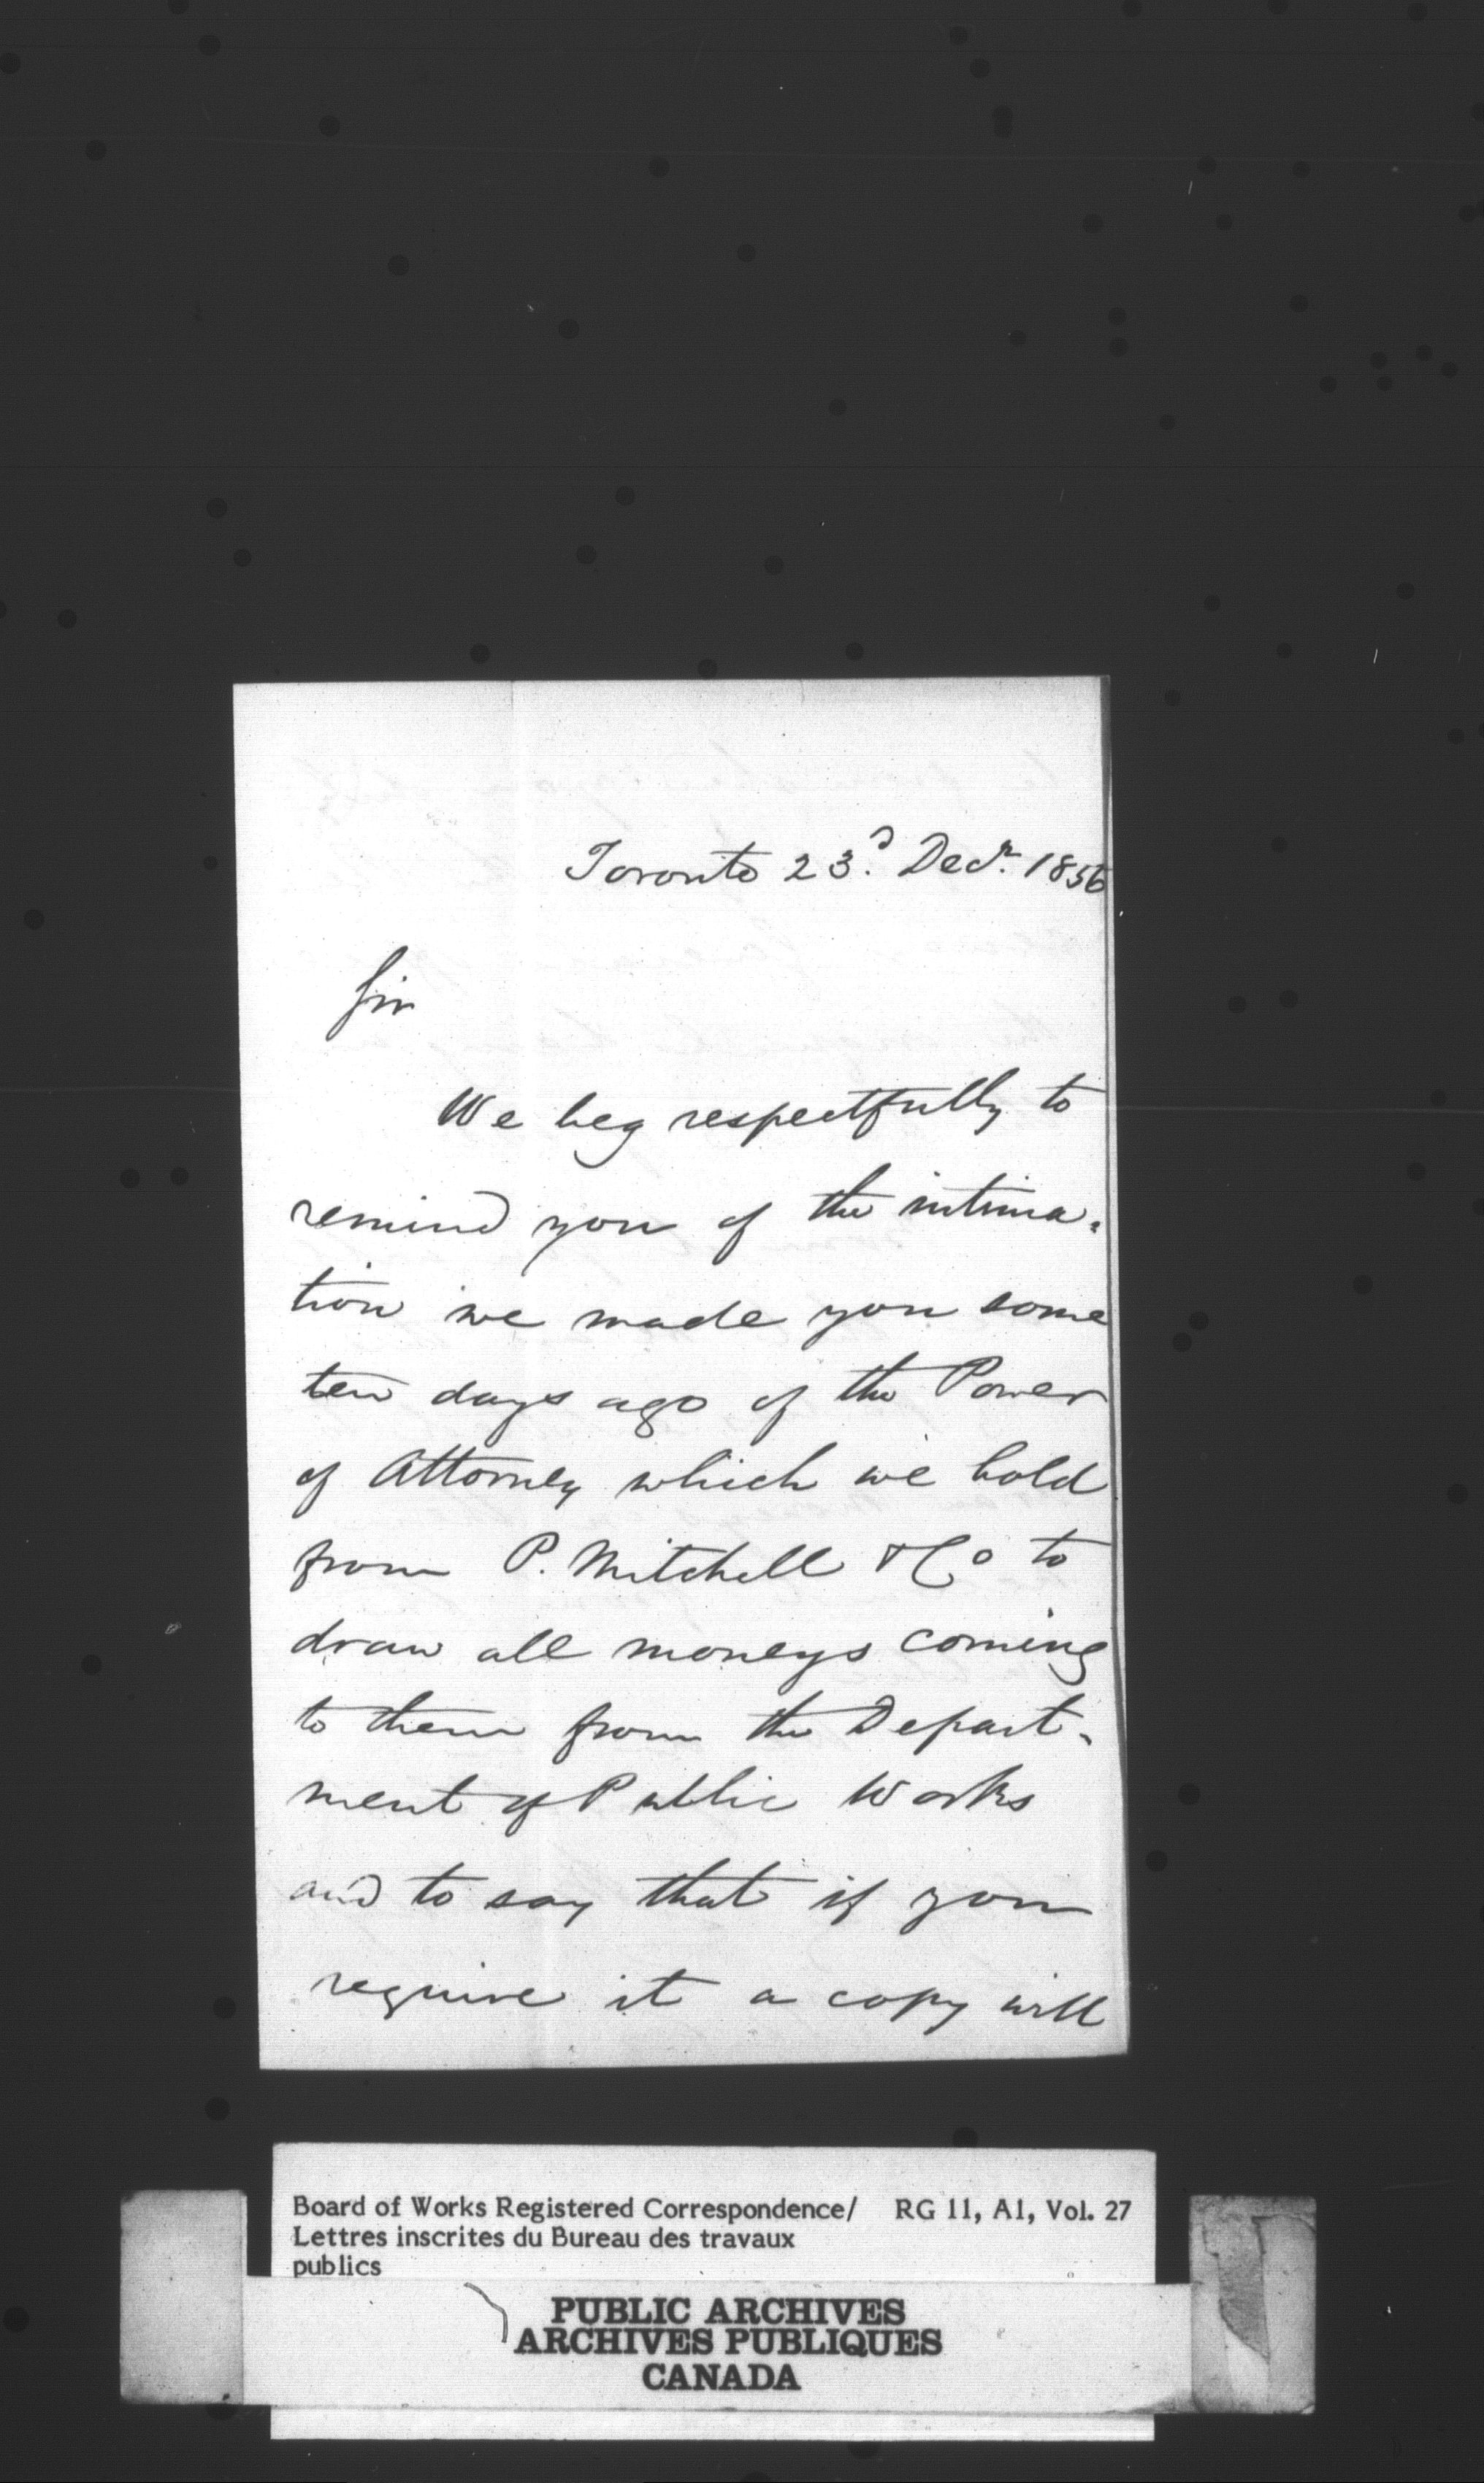 Toronto 23.d Decr. 1856
Sir
We beg respectfully to
remind you of the intima=
tion we made you some
ten days ago of the Power
of Attorney which we hold
from P. Mitchell & Co to
draw all moneys coming
to them from the Depart-
ment of Public Works
and to say that if you
require it a copy will
Board of Works Registered Correspondence/ RG 11, A1, Vol. 27
Lettres inscrites du Bureau des travaux
publics
PUBLIC ARCHIVES
ARCHIVES PUBLIQUES
CANADA